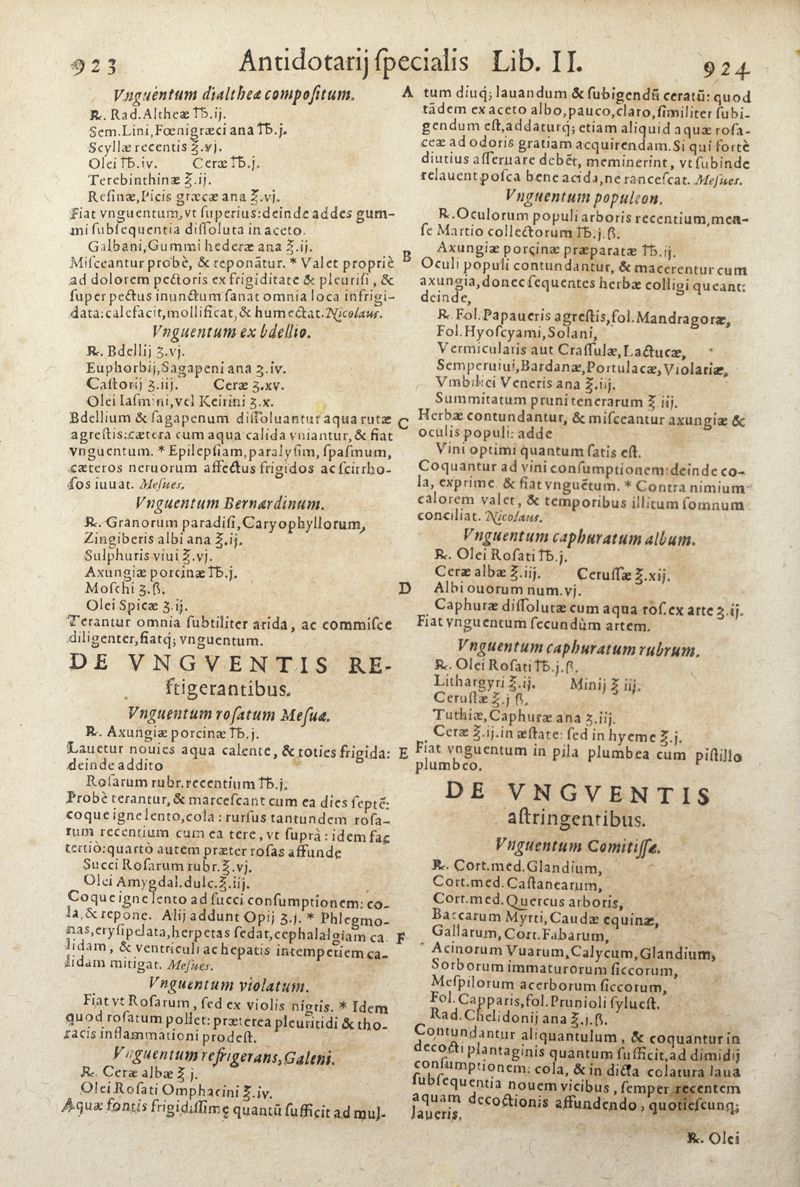 923
Antidotarij ſpecialis Lib. II.
924
Vnguentum dialtheæ compoſitum.
℞. Rad. Altheæ ℔.ij.
Sem. Lini, Fœnigræci ana ℔.j.
Scyllæ recentis ℥.vj.
Olei ℔.iv. Ceræ ℔.j.
Terebinthinæ ℥.ij.
Reſinæ, Picis græcæ ana ℥.vj.
Fiat vnguentum, vt ſuperius: deinde addes gum-
mi ſubſequentia diſſoluta in aceto.
Galbani, Gummi hederæ ana ℥.ij.
Miſceantur probè, & reponãtur. * Valet propriè
ad dolorem pectoris ex frigiditate & pleuriſi, &
ſuper pectus inunctum ſanat omnia loca infrigi-
data: calefacit, mollificat, & humectat. Nicolaus.
Vnguentum ex bdellio.
℞. Bdellij ʒ.vj.
Euphorbij, Sagapeni ana ʒ.iv.
Caſtorij ʒ.iij. Ceræ ʒ.xv.
Olei Iaſmini, vel Keirini ʒ.x.
Bdellium & ſagapenum diſſoluantur aqua rutæ
agreſtis: cætera cum aqua calida vniantur, & fiat
vnguentum. * Epilepſiam, paralyſim, ſpaſmum,
cæteros neruorum affectus frigidos ac ſcirrho-
ſos iuuat. Meſues.
Vnguentum Bernardinum.
℞. Granorum paradiſi, Caryophyllorum,
Zingiberis albi ana ℥.ij.
Sulphuris viui ℥.vj.
Axungiæ porcinæ ℔.j.
Moſchi ʒ.ß.
Olei Spicæ ʒ.ij.
Terantur omnia ſubtiliter arida, ac commiſce
diligenter, fiatq; vnguentum.
DE VNGVENTIS RE-
frigerantibus.
Vnguentum roſatum Meſuæ.
℞. Axungiæ porcinæ ℔.j.
Lauetur nouies aqua calente, & toties frigida:
deinde addito
Roſarum rubr. recentium ℔.j.
Probè terantur, & marceſcant cum ea dies ſeptẽ:
coque igne lento, cola: rurſus tantundem roſa-
rum recentium cum ea tere, vt ſuprà: idem fac
tertiò: quartò autem præter roſas affunde
Succi Roſarum rubr. ℥.vj.
Olei Amygdal. dulc. ℥.iij.
Coque igne lento ad ſucci conſumptionem: co-
la, & repone. Alij addunt Opij ʒ.j. * Phlegmo-
nas, eryſipelata, herpetas ſedat, cephalalgiam ca
lidam, & ventriculi ac hepatis intemperiem ca-
lidam mitigat. Meſues.
Vnguentum violatum.
Fiat vt Roſarum, ſed ex violis nigris. * Idem
quod roſatum pollet: præterea pleuritidi & tho-
racis inflammationi prodeſt.
Vnguentum refrigerans, Galeni.
℞. Ceræ albæ ℥ j.
Olei Roſati Omphacini ℥.iv.
Aquæ fontis frigidiſſimę quantũ ſufficit ad mul-
A tum diuq; lauandum & ſubigendũ ceratũ: quod
tãdem ex aceto albo, pauco, claro, ſimiliter ſubi-
gendum eſt, addaturq; etiam aliquid aquæ roſa-
ceæ ad odoris gratiam acquirendam. Si qui fortè
diutius aſſeruare debẽt, meminerint, vt ſubinde
relauent poſca bene acida, ne ranceſcat. Meſues.
Vnguentum populeon.
℞. Oculorum populi arboris recentium, men-
ſe Martio collectorum ℔.j.ß.
B Axungiæ porcinæ præparatæ ℔.ij.
Oculi populi contundantur, & macerentur cum
axungia, donec ſequentes herbæ colligi queant:
deinde,
℞ Fol. Papaueris agreſtis, fol. Mandragoræ,
Fol. Hyoſcyami, Solani,
Vermicularis aut Craſſulæ, Lactucæ,
Semperuiui, Bardanæ, Portulacæ, Violariæ,
Vmbilici Veneris ana ℥.iij.
Summitatum pruni tenerarum ℥ iij.
C Herbæ contundantur, & miſceantur axungiæ &
oculis populi: adde
Vini optimi quantum ſatis eſt.
Coquantur ad vini conſumptionem: deinde co-
la, exprime & fiat vnguẽtum. * Contra nimium
calorem valet, & temporibus illitum ſomnum
conciliat. Nicolaus.
Vnguentum caphuratum album.
℞. Olei Roſati ℔.j.
Ceræ albæ ℥.iij. Ceruſſæ ℥.xij.
D Albi ouorum num. vj.
Caphuræ diſſolutæ cum aqua roſ. ex arte ʒ.ij.
Fiat vnguentum ſecundùm artem.
Vnguentum caphuratum rubrum.
℞. Olei Roſati ℔.j.ß.
Lithargyri ℥.ij. Minij ℥ iij.
Ceruſſæ ℥.j ß.
Tuthiæ, Caphuræ ana ʒ.iij.
Ceræ ℥.ij. in æſtate: ſed in hyeme ℥.j.
E Fiat vnguentum in pila plumbea cum piſtillo
plumbeo.
DE VNGVENTIS
aſtringentibus.
Vnguentum Comitiſſæ.
℞. Cort. med. Glandium,
Cort. med. Caſtanearum,
Cort. med. Quercus arboris,
Baccarum Myrti, Caudæ equinæ,
F Gallarum, Cort. Fabarum,
Acinorum Vuarum, Calycum, Glandium,
Sorborum immaturorum ſiccorum,
Meſpilorum acerborum ſiccorum,
Fol. Capparis, fol. Prunioli ſylueſt.
Rad. Chelidonij ana ℥.j.ß.
Contundantur aliquantulum, & coquantur in
decocti plantaginis quantum ſufficit, ad dimidij
conſumptionem: cola, & in dicta colatura laua
ſubſequentia nouem vicibus, ſemper recentem
aquam decoctionis affundendo, quotieſcunq;
laueris.
℞. Olei